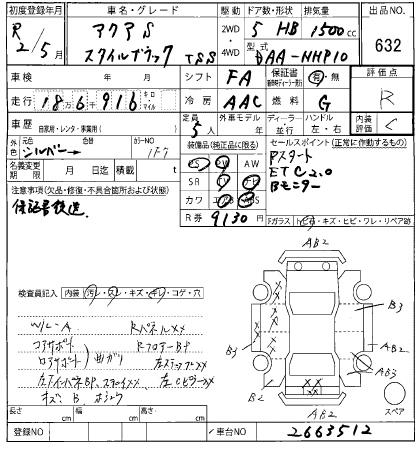 初度登録年月 車名・グレード 駆動 ドア数・形状 排気量 出品NO.
R 2年5月 アクアS 2WD 5 HB 1500cc
スタイルブラック TSS 4WD 型式 DAA-NHP10 632
車検 年 月 シフト FA 保証書 有・無 評価点
走行 18万6千916 キロ マイル 冷房 AAC 燃料 G R
車歴 自家用・レンタ・事業用( ) 定員 5人 外車モデル ディーラー・並行 ハンドル 左・右 内装評価 C
外色 元色 シルバー 色替 カラーNO 1F7 装備品(純正品に限る) セールスポイント(正常に作動するもの)
名義変更期限 月 日迄 積載 t PS PW AW Pスタート
注意事項(欠品・修復・不具合箇所および状態) SR TV ナビ ETC2.0
保証書後送 カワ エアB ABS Bモニター
R券 9130円 Fガラス トビ石・キズ・ヒビ・ワレ・リペア跡
検査員記入 内装 汚レ・スレ・キズ・キレ・コゲ・穴
AB2
W/L-A RパネルXX
コアサポート RフロアーBP
ロアサポート 曲がり 左ステップXX
キズ B
B3 A B3 AB2 B2 AB3 AB2
スペア
長さ cm 幅 cm 高さ cm
登録NO 車台NO 2663512